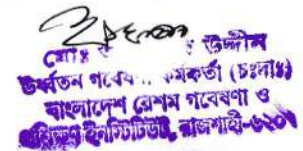 মোঃ উদ্দীন
উর্ধ্বতন গবেষণা কর্মকর্তা (চঃদাঃ)
বাংলাদেশ রেশম গবেষণা ও
প্রশিক্ষণ ইনস্টিটিউট, রাজশাহী-৬২০৭